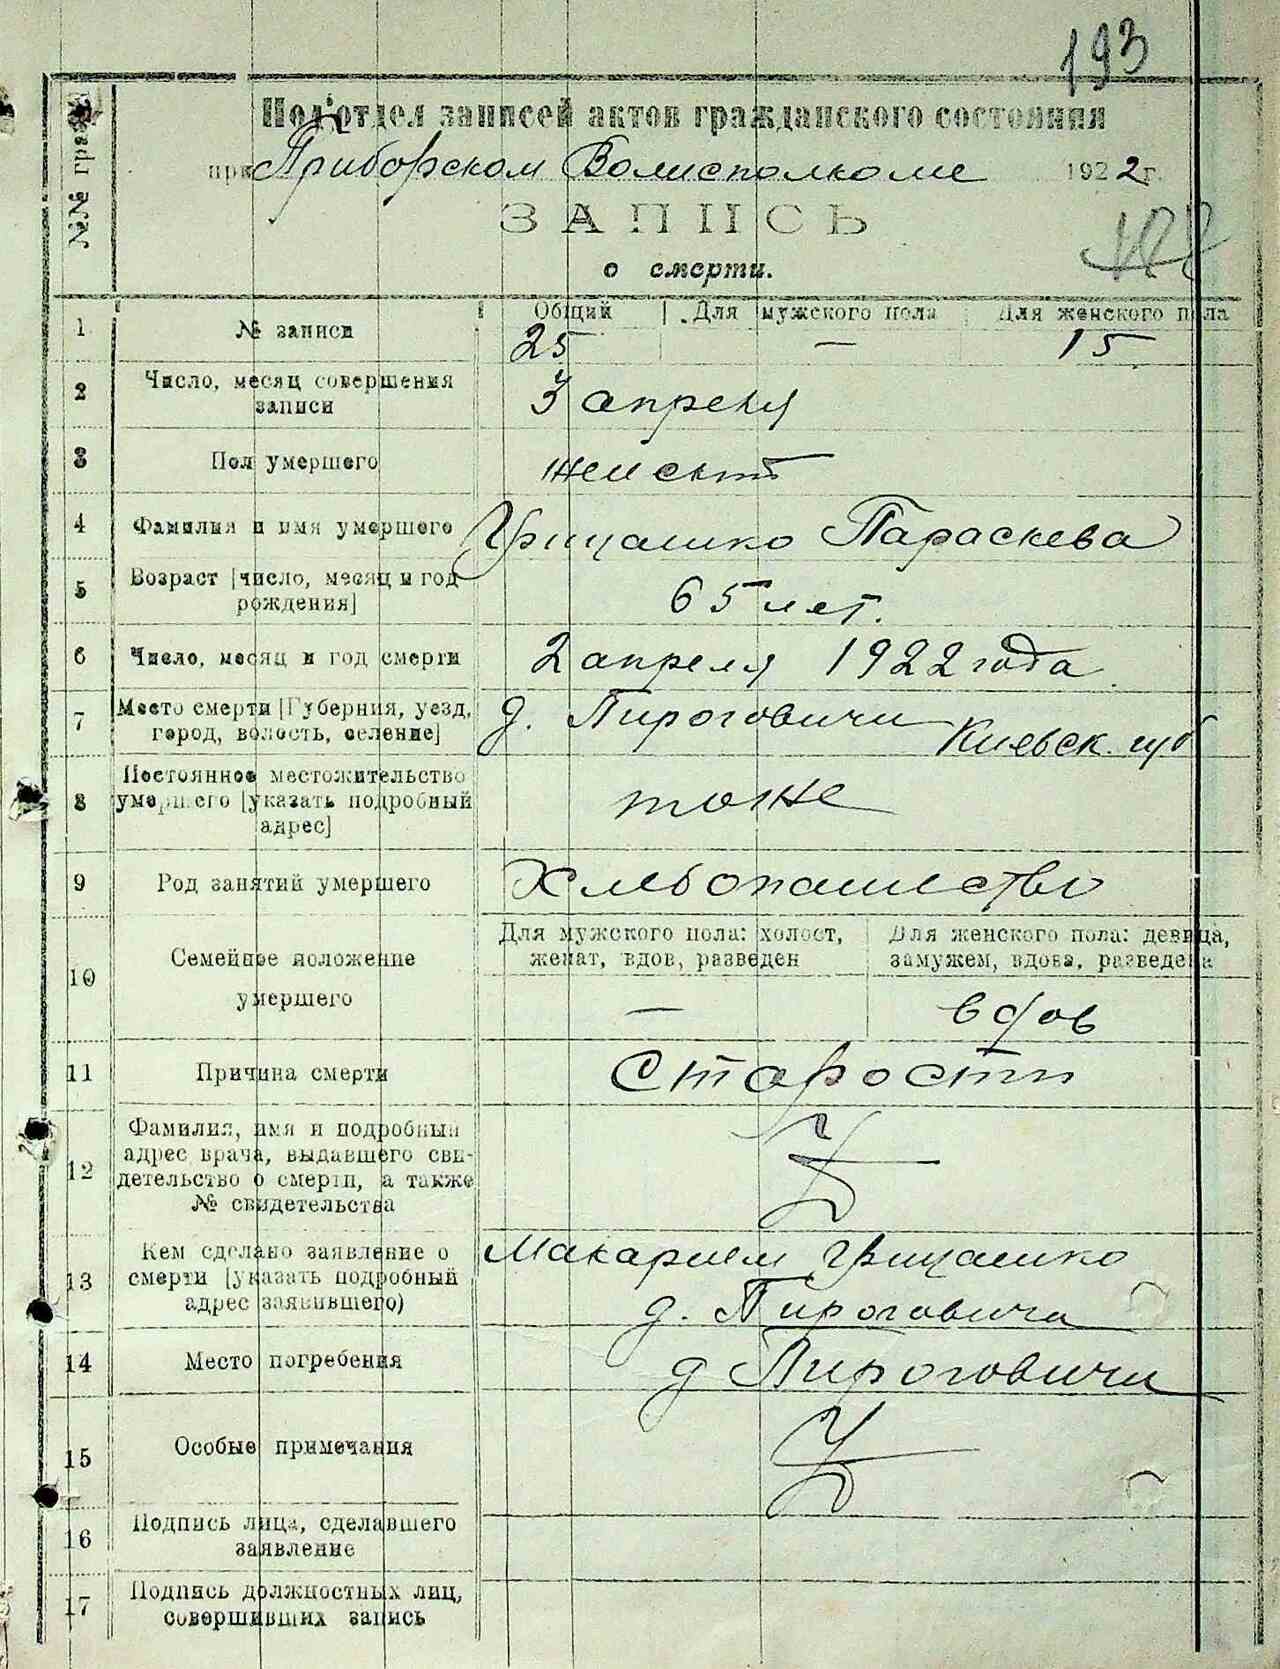 193
№№ граф
Под'отдел записей актов гражданского состояния
при Приборском Волисполкоме 1922 г.
ЗАПИСЬ
о смерти.
Общий Для мужского пола Для женского пола
1 № записи 25 — 15
2 Число, месяц совершения
записи 3 апреля
3 Пол умершего женск
4 Фамилия и имя умершего Грицашко Параскева
5 Возраст [число, месяц и год
рождения] 65 лет.
6 Число, месяц и год смерти 2 апреля 1922 года
7 Место смерти [Губерния, уезд,
город, волость, селение] д. Пироговичи Киевск. губ
8 Постоянное местожительство
умершего [указать подробный
адрес] тоже
9 Род занятий умершего Хлебопашество
10 Семейное положение
умершего
Для мужского пола: холост,
женат, вдов, разведен
—
Для женского пола: девица,
замужем, вдова, разведена
вдов
11 Причина смерти Старости
12 Фамилия, имя и подробный
адрес врача, выдавшего сви-
детельство о смерти, а также
№ свидетельства
13 Кем сделано заявление о
смерти [указать подробный
адрес заявившего)
Макарием Грицашко
д. Пироговичи
14 Место погребения д Пироговичи
15 Особые примечания
16 Подпись лица, сделавшего
заявление
17 Подпись должностных лиц,
совершивших запись